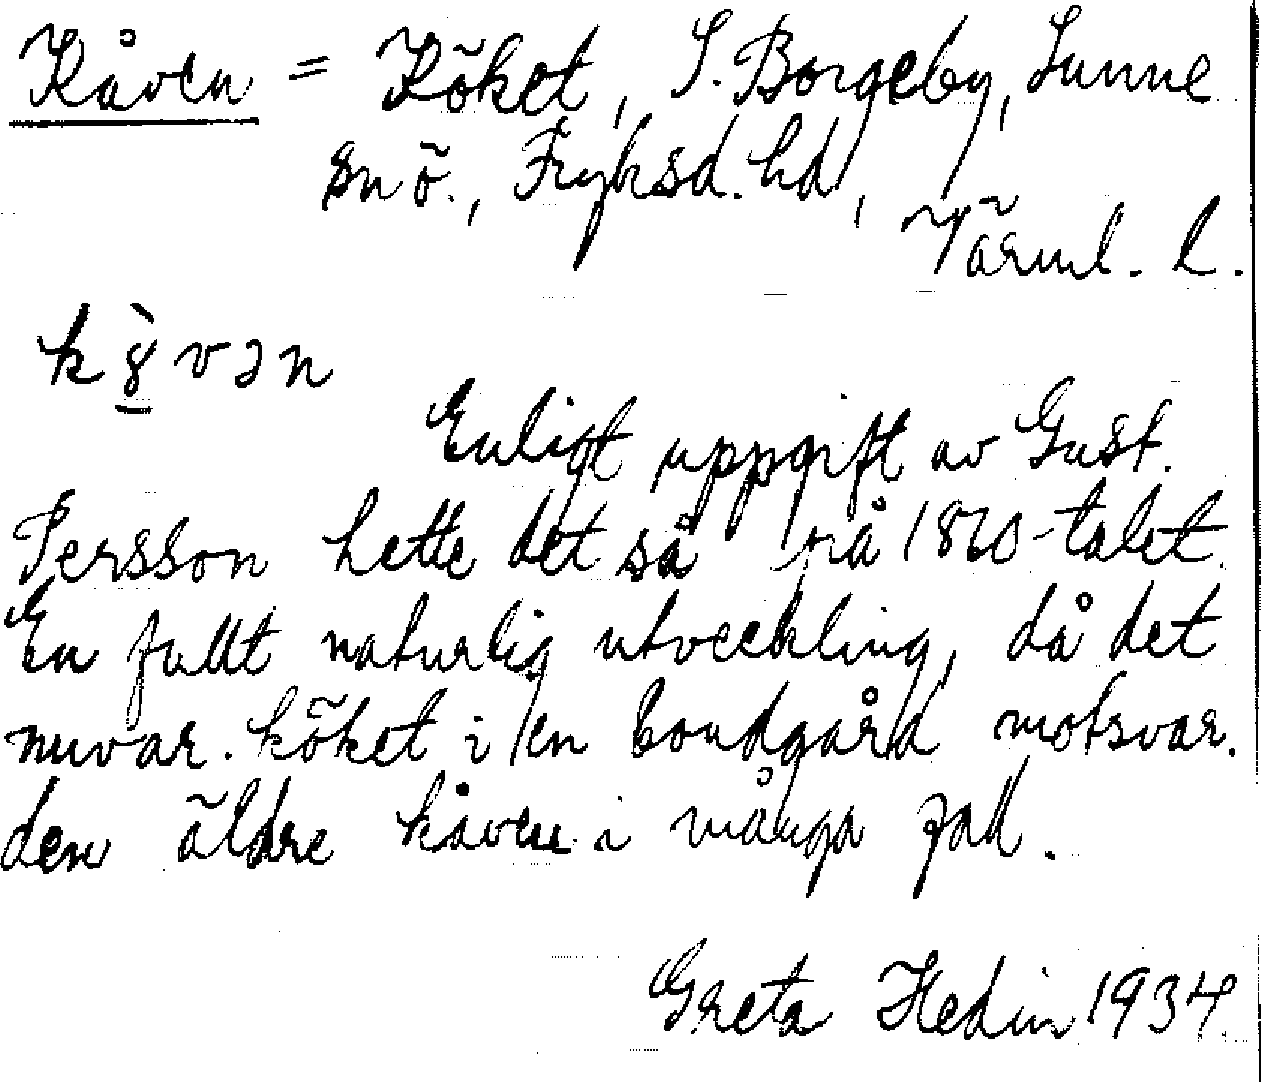 Kåven = Köket, S. Borgeby, Sunne
snö., Fryksd. hd,
Värml. l.
k8̀vən
Enligt uppgift av Gust.
Persson hette det så på 1870-talet.
En fullt naturlig utveckling, då det
nuvar. köket i en bondgård motsvar.
den äldre kåven i många fall.
Greta Hedin 1934.